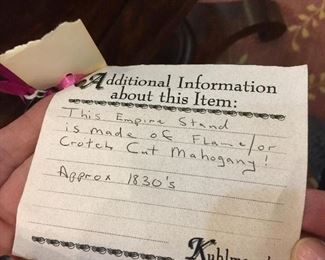 Additional Information
about this Item:
This Empire Stand
is made of Flame/or
Crotch Cut Mahogany!
Approx 1830's